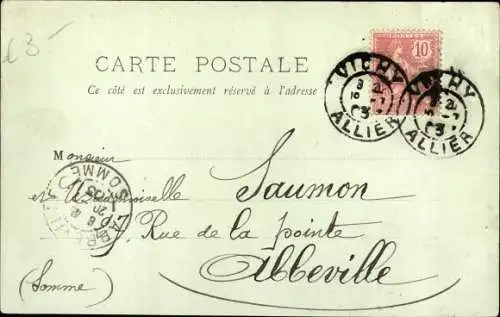 £3-
10
CARTE POSTALE
Ce côté est exclusivement réservé à l'adresse
VICHY
ALLIER
VICHY
ALLIER
Monsieur
et Mademoiselle Saumon
Rue de la pointe
Abbeville
(Somme)
ABBEVILLE
SOMME